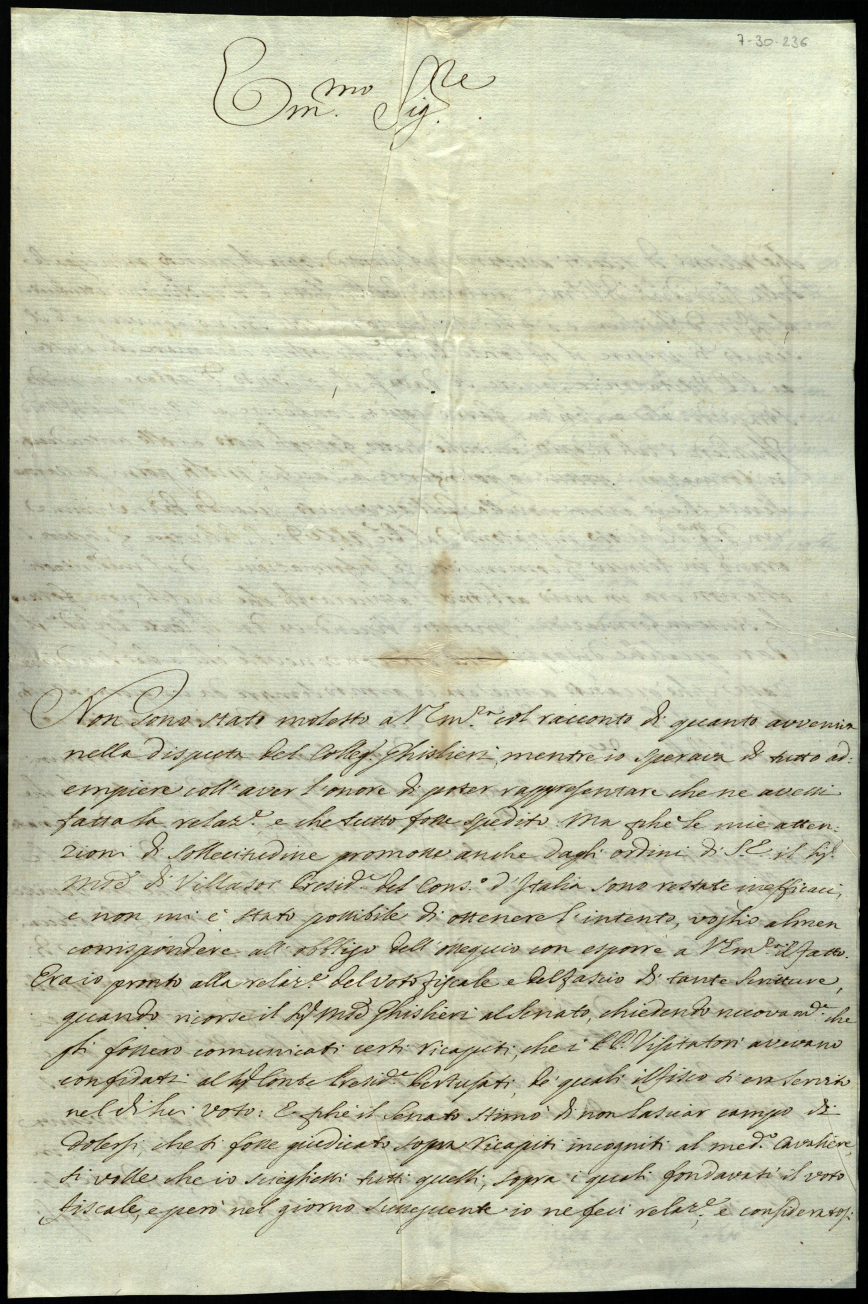 7-30-236
Em.mo Sig.re
Non sono stato molesto a V. Em.a col racconto di quanto avveniva
nella disputa del Colleg. Ghislieri, mentre io sperava di tutto ad=
empiere coll'aver l'onore di poter rappresentare che ne avessi
fatta la relaz.e e che tutto fosse spedito. Ma perche le mie atten=
zioni di sollecitudine promosse anche dagli ordini di S.E. il Sig.
Mse di Villasor Presid.e del Cons.o d'Italia sono restate inefficaci,
e non mi è stato possibile di ottenere l'intento, voglio almen
corrispondere all'obbligo dell'ossequio con esporre a V. Em.a il fatto.
Era io pronto alla relaz.e del voto fiscale e del fascio di tante scritture,
quando ricorse il Sig. Mse Ghislieri al Senato, chiedendo nuovam.e che
gli fossero comunicati certi ricapiti, che i PP. Visitatori avevano
confidati al Sig. Conte Presid.e Pertusati, de quali il fisco si era servito
nel di lui voto: E perche il Senato stimò di non lasciar campo di
dolersi, che si fosse giudicato sopra ricapiti incogniti al med.o Cavaliere,
si volle che io sciegliessi tutti quelli, sopra i quali fondavasi il voto
fiscale, e però nel giorno susseguente io ne feci relaz.e, e consideratosi